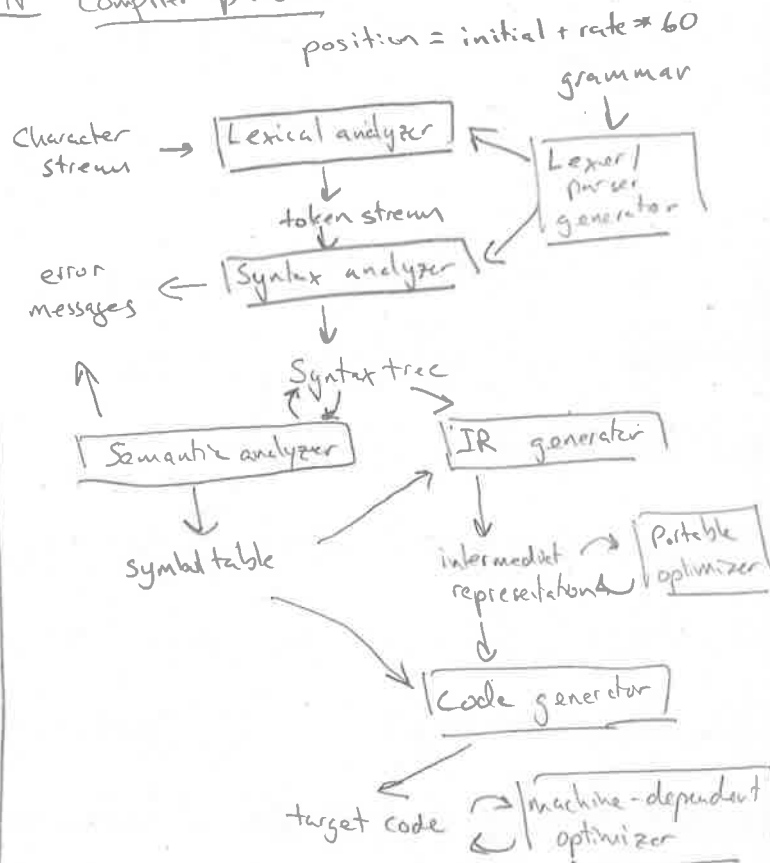 Compiler
position = initial + rate * 60
grammar
Character
stream
Lexical analyzer
Lexer/
parser
generator
token stream
error
messages
Syntax analyzer
Syntax tree
Semantic analyzer
IR generator
symbol table
intermediat
representation
Portable
optimizer
Code generator
target code
machine-dependent
optimizer